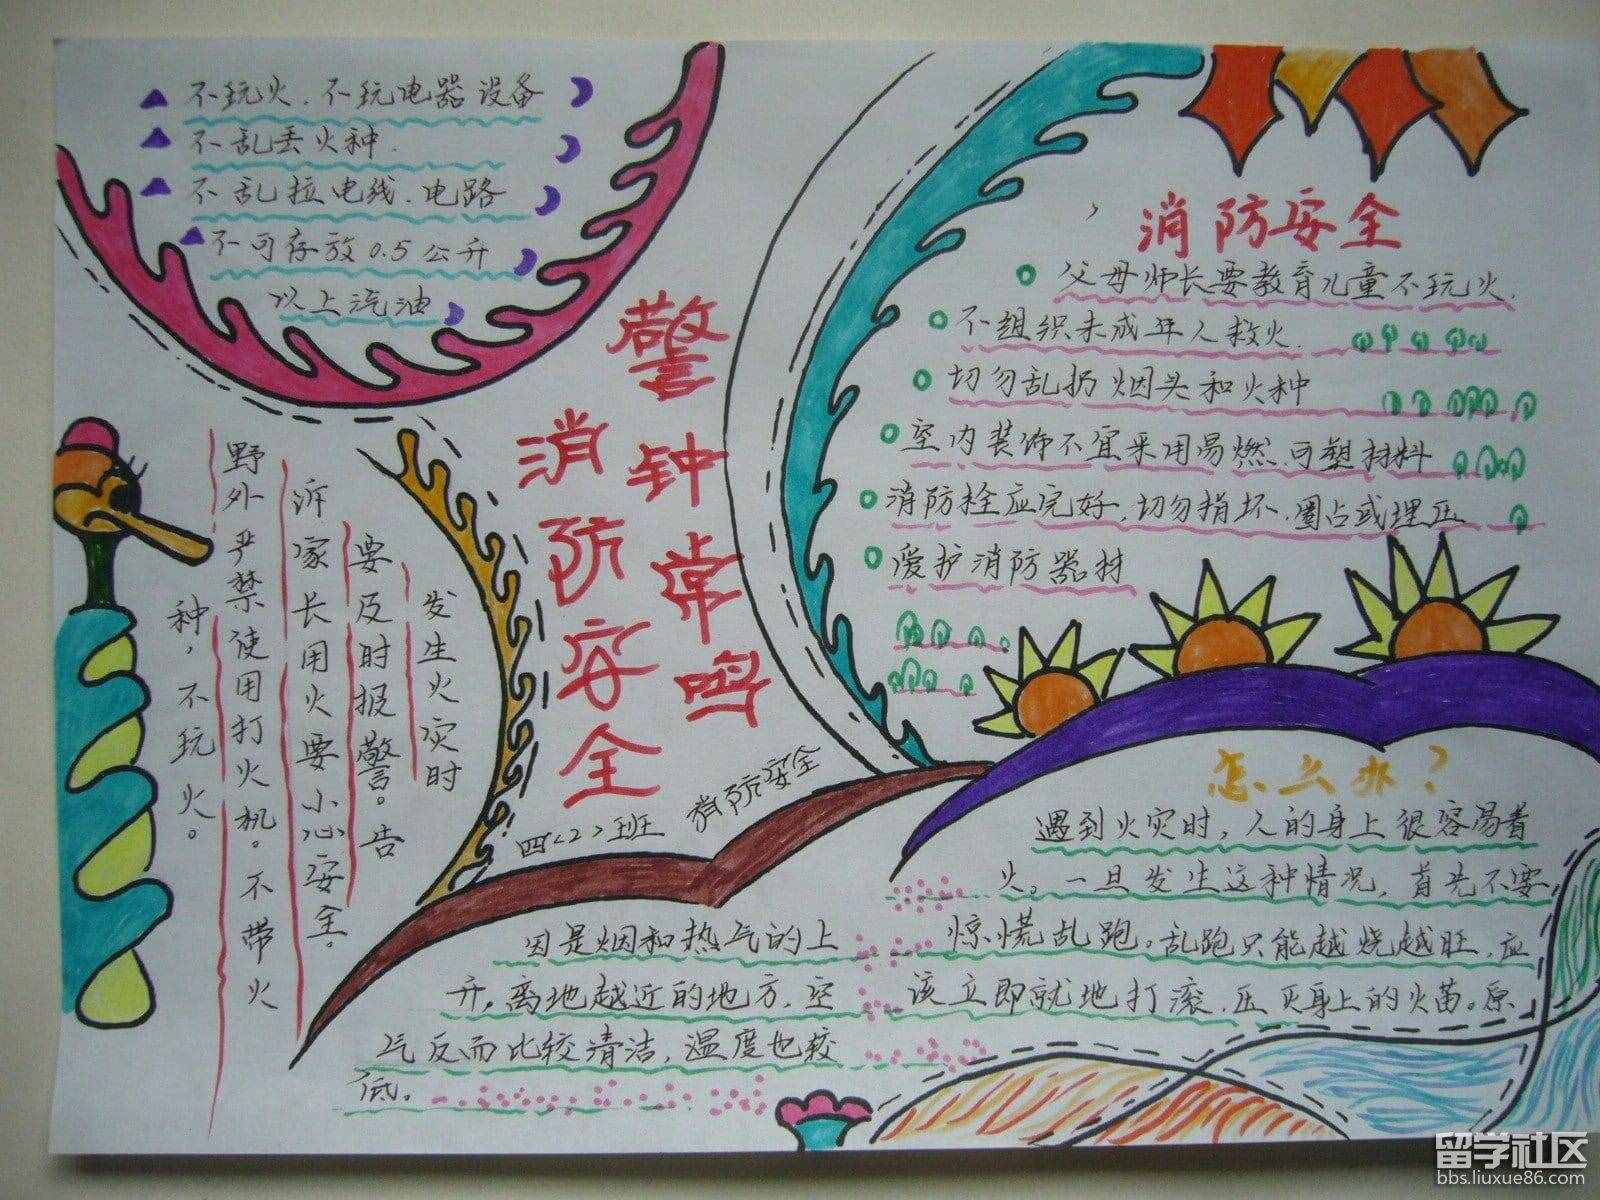 不玩火、不玩电器设备
不乱丢火种.
不乱拉电线、电路
不可存放0.5公升
以上汽油
警钟常鸣
消防安全
消防安全
父母师长要教育儿童不玩火.
不组织未成年人救火.
切勿乱扔烟头和火种
室内装饰不宜采用易燃、可塑材料
消防栓应完好,切勿损坏、圈占或埋压
爱护消防器材
发生火灾时
要及时报警。告
诉家长用火要小心安全.
野外严禁使用打火机。不带火
种,不玩火。
四<2>班
消防安全
怎么办?
遇到火灾时,人的身上很容易着
火。一旦发生这种情况,首先不要
惊慌乱跑。乱跑只能越烧越旺,应
该立即就地打滚,压灭身上的火苗。原
因是烟和热气的上
升,离地越近的地方,空
气反而比较清洁,温度也较
低。
留学社区
bbs.liuxue86.com